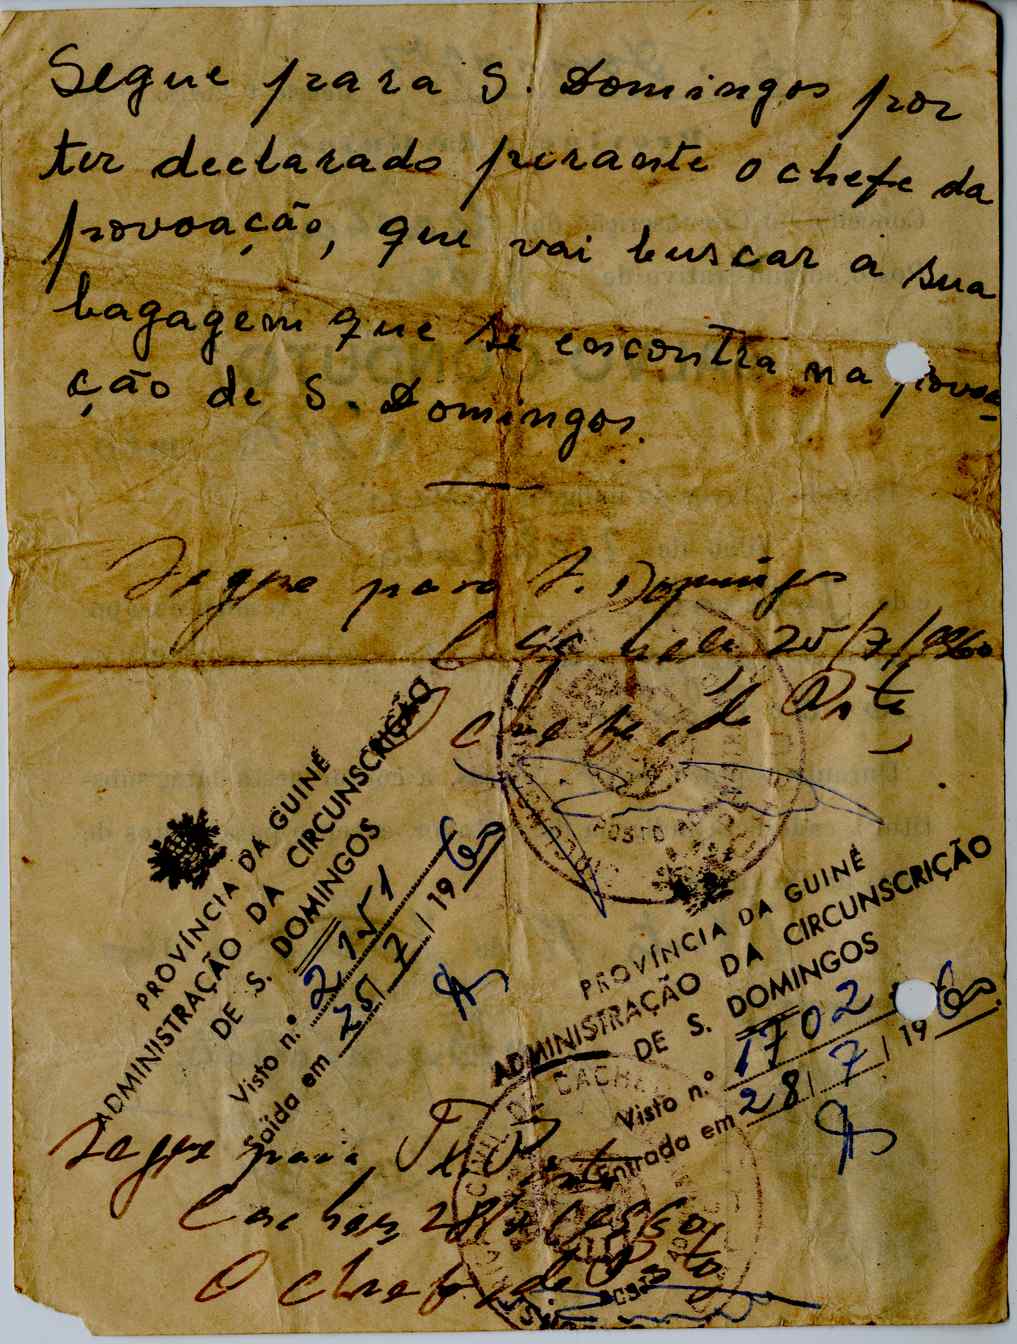 Segue para S. Domingos por
ter declarado perante o chefe da
provoação, que vai buscar a sua
bagagem que se encontra na provoa-
ção de S. Domingos.
Segue para S. Domingos
25/7/1960
Chefe de Posto
PROVÍNCIA DA GUINÉ
ADMINIISTRAÇÃO DA CIRCUNSCRIÇÃO
DE S. DOMINGOS
Visto n.º 2151
Saída em 25/7/1960
POSTO
PROVÍNCIA DA GUINÉ
ADMINISTRAÇÃO DA CIRCUNSCRIÇÃO
DE S. DOMINGOS
Visto n.º 1702
Entrada em 28/7/1960
CACHEU
Segue para
Cacheu, 28/7/1960
O chefe de Posto